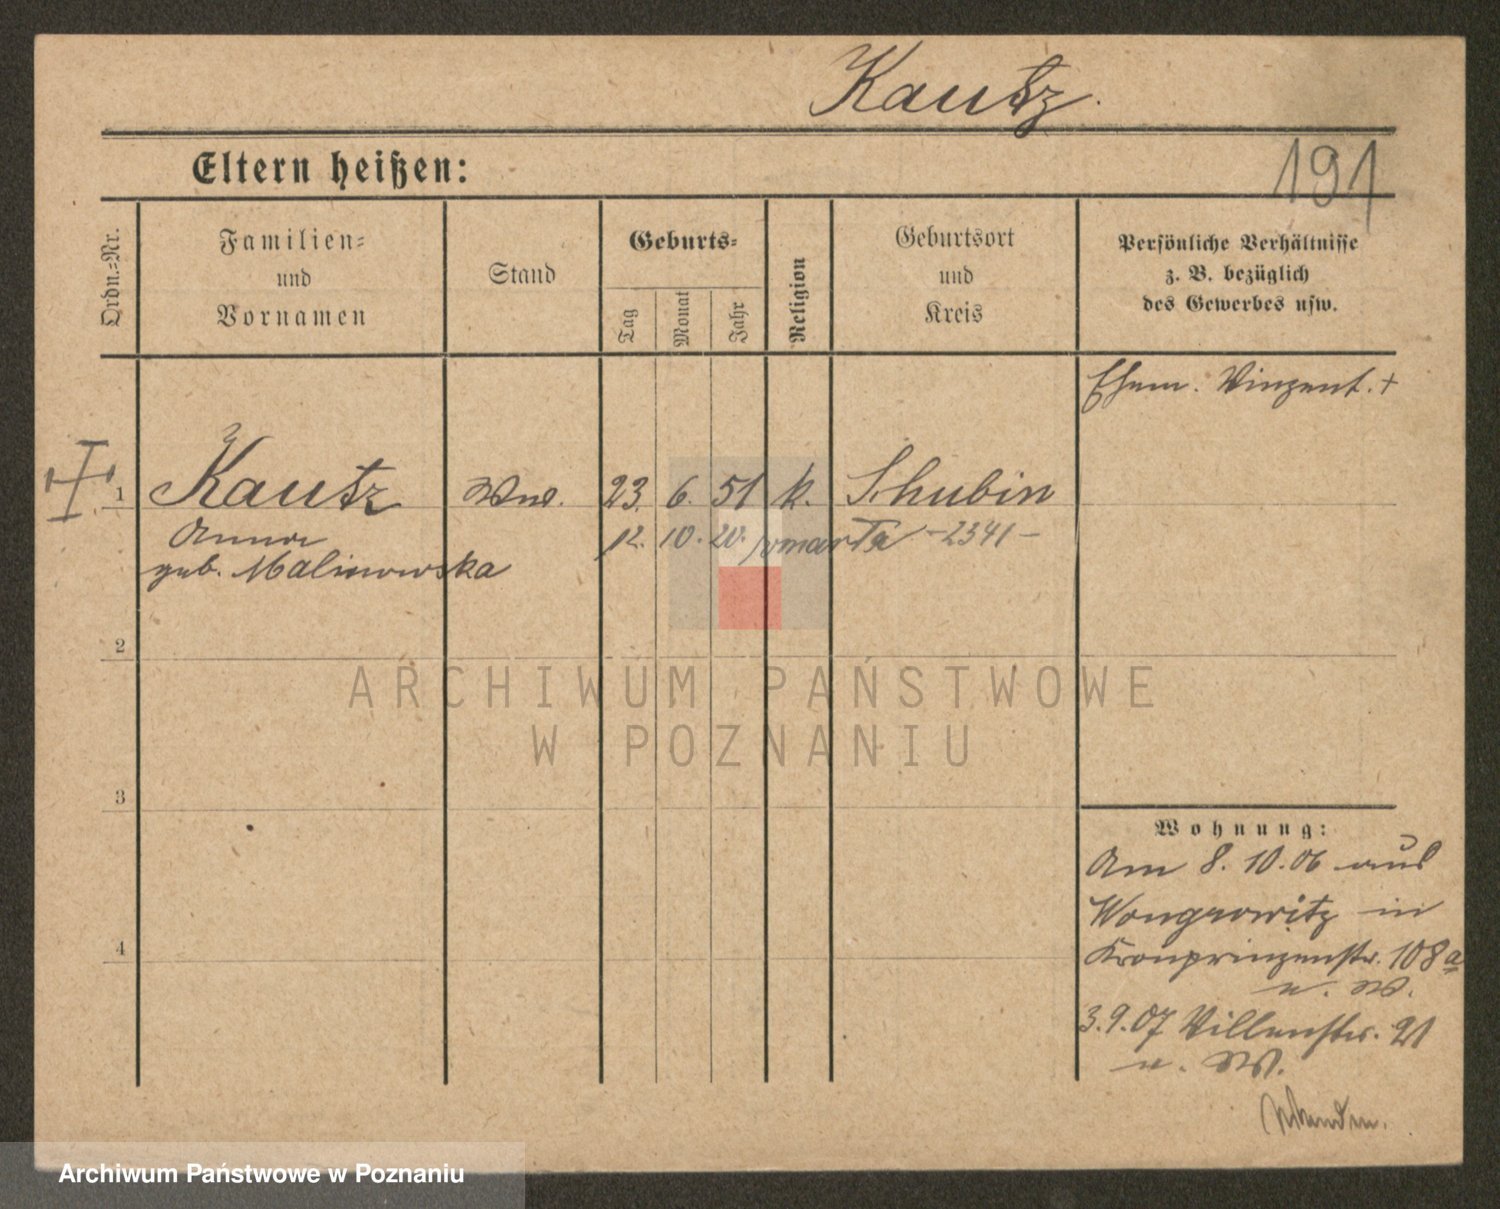 Kautz.
Eltern heißen:
191
Ordn.-Nr.
Familien-
und
Vornamen
Stand
Geburts-
Tag
Monat
Jahr
Religion
Geburtsort
und
Kreis
Persönliche Verhältnisse
z. B. bezüglich
des Gewerbes usw.
Ehem. Vinzent. +
1 Kautz Wwe. 23. 6. 51 k. Schubin
Anna 12. 10. 20. zmarła -2341-
geb. Malinowska
2
3
4
Wohnung:
Am 8. 10. 06 aus
Wongrowitz in
Kronprinzenstr. 108a
n. W.
3.9.07 Villenstr. 21
n. W.
ARCHIWUM PAŃSTWOWE
W POZNANIU
Archiwum Państwowe w Poznaniu